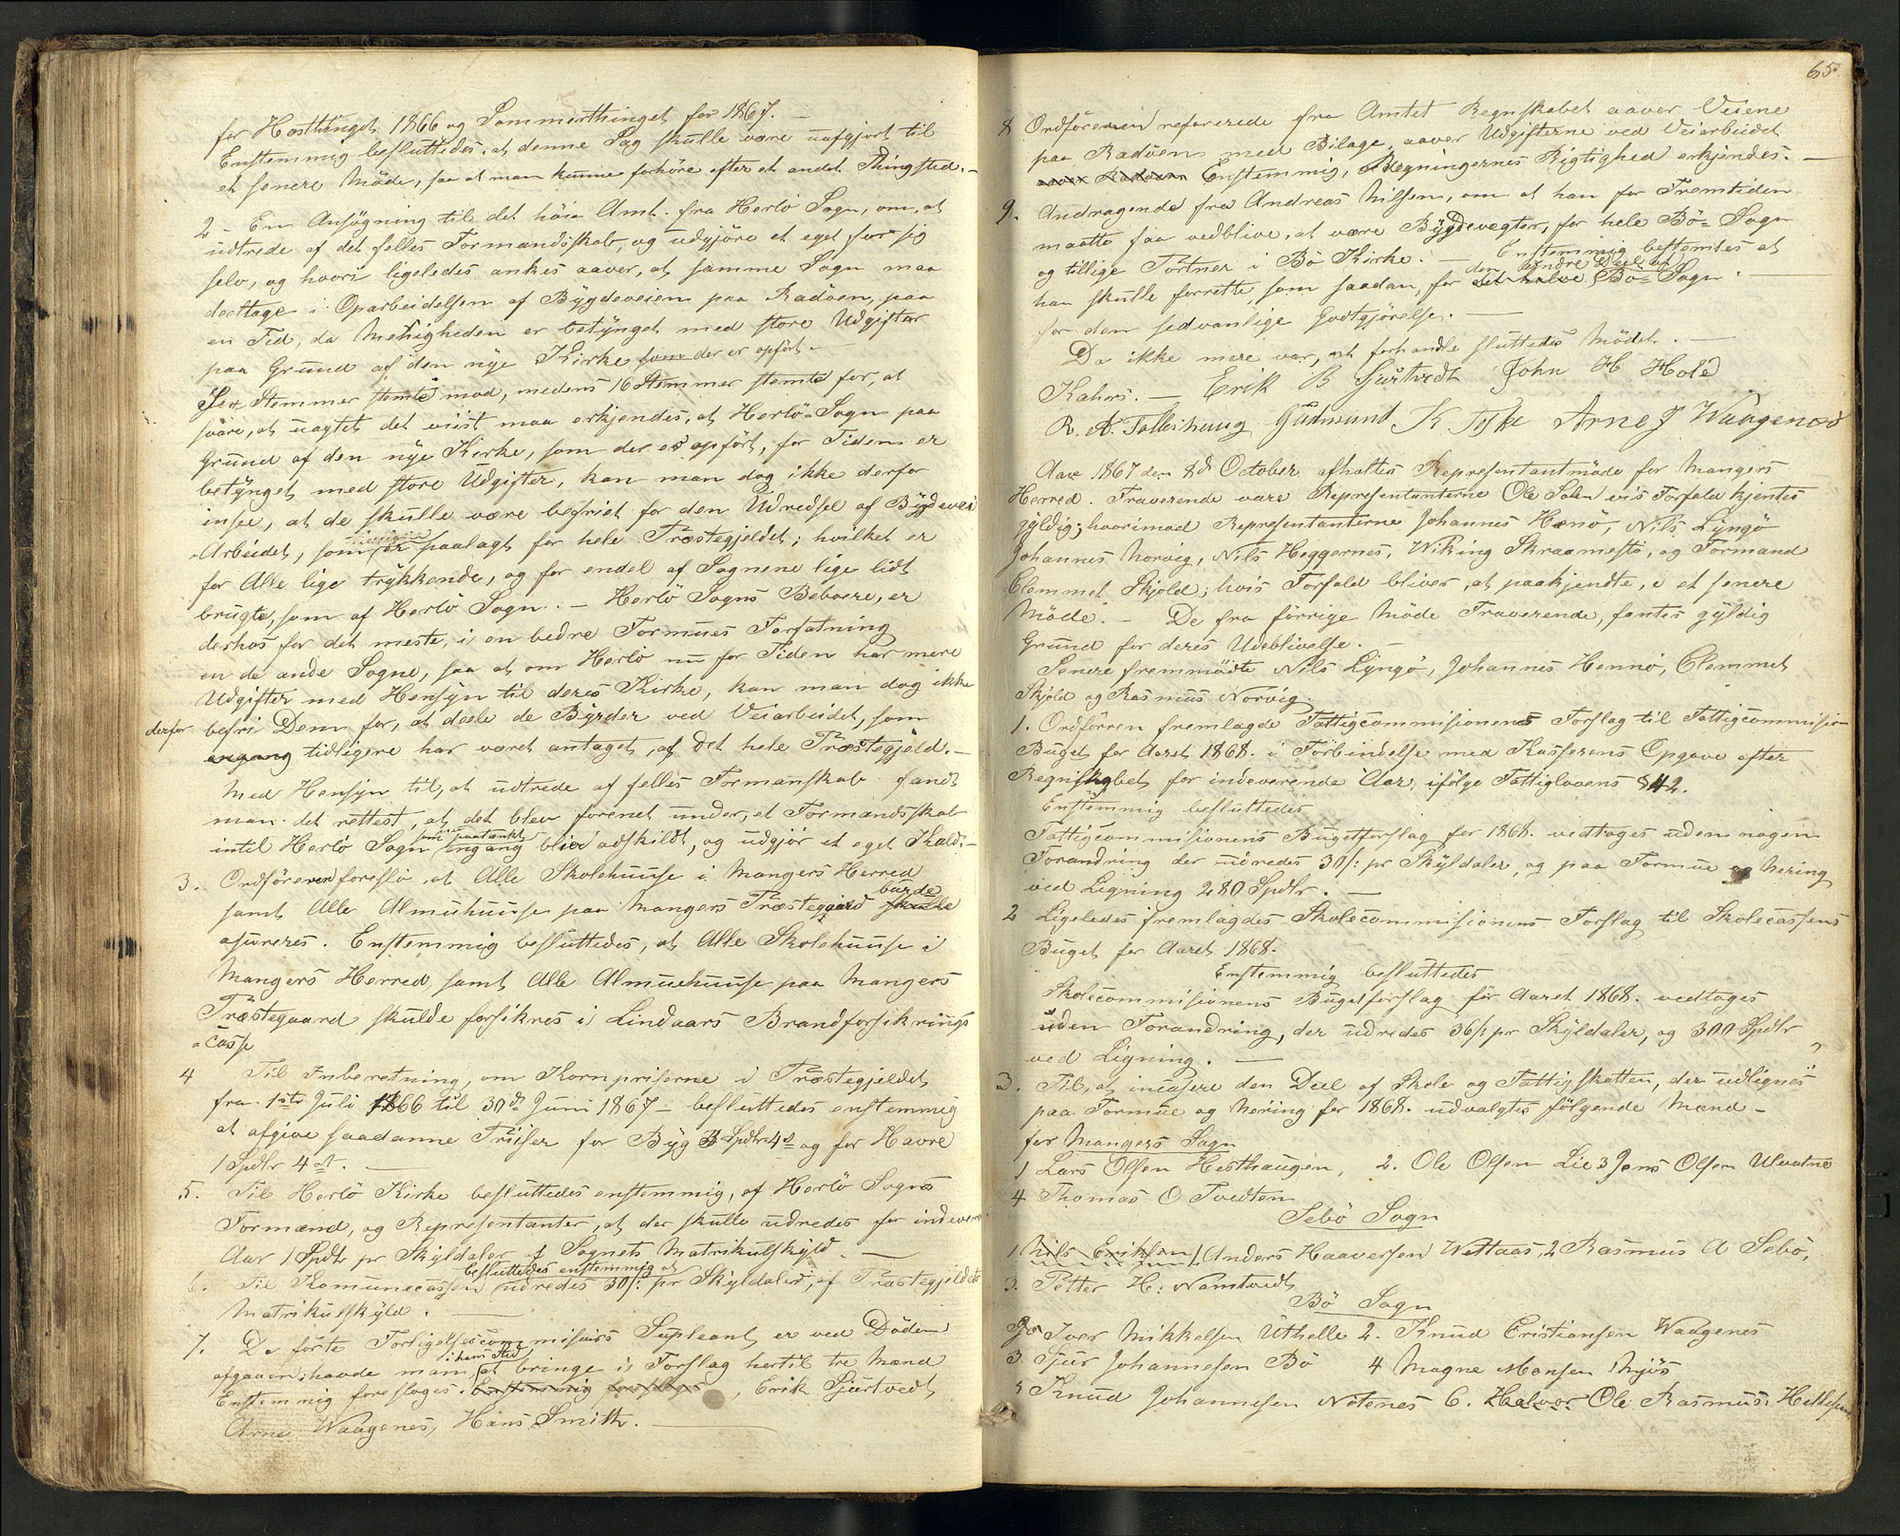 for Høstthinget 1866 og Sommerthinget for 1867. —
Enstemmig besluttedes, at denne Sag skulle være uafgjort til
et senere Møde, saa at man kunne forhøre efter et andet Thingsted. —
2 – En Ansøgning til det høie Amt. fra Herlö Sogn, om, at
udtrede af det felles Formandsskab, og udgjöre et eget for sig
selv, og hvori ligeledes ankes aaver, at samme Sogn maa
deeltage i Oparbeidelsen af Bÿgdeveien paa Radöen, paa
en Tid, da Menigheden er betÿnget med store Udgifter
paa Grund af den nye Kirke som der er opført –
Sex Stemmer stemte mod, medens 16 Stemmer stemte for, at
svare, at uagtet det vist maa erkjendes, at Herlö Sogn paa
Grund af den nÿe Kirke, som der er opført, for Tiden er
betÿnget med store Udgifter, kan man dog ikke derfor
insee, at de skulle være befriet for den Udredsel af Bÿgdevei
Arbeidet, som er paalagt for hele Præstegjeldet; hvilket er
for Alle lige trÿkkende, og for endel af Sognene lige lidt
brugte, som af Herlö Sogn. – Herlö Sogns Beboere, er
derhos for det meste, i en bedre Formues Forfatning
en de ande Sogne, saa at om Herlö nu for Tiden har mere
Udgifter med Hensÿn til deres Kirke, kan man dog ikke
derfor befri Dem for, at deele de Bÿrder ved Veiarbeidet, som
engang tidligere har været antaget, af det hele Præstegjeld. —
Med Hensÿn til, at udtrede af felles Formanskab fandt
man det rettest, at det blev forenet under et Formandsskab
som paatænkt
intil Herlö Sogn engang blier adskildt, og udgjør et eget Kald. –
3. Ordføreren foreslo, at Alle Skolehuuse i Mangers Herred
burde
samt Alle Almuhuuse paa Mangers Præstegaard skulle
asureres. Enstemmig besluttedes, at Alle Skolehuuse i
Mangers Herred, samt Alle Almuehuuse paa Mangers
Præstegaard skulde forsikres i Lindaars Brandforsikrings
casse
4 Til Inberetning, om Kornpriserne i Præstegjeldet
fra 1ste Juli 1866 til 30de Juni 1867 – besluttedes enstemmig
at afgive saadanne Priser for Bÿg 3 Spdlr 4 og for Havre
1 Spdlr 4 . —
5. Til Herlö Kirke besluttedes enstemmig, af Herlö Sogns
Formænd, og Repræsentanter, at der skulle udredes for indevere
Aar 1 Spdlr pr Skÿldaler af Sognets Matrikulskÿld. —
besluttedes enstemmig at
6. Til Komunecassen udredes 30/: pr Skÿldaler, af Præstegjeldets
Matrikulskÿld. —
7. Da förte Forligelsescommisairs Supleant er ved Döden
i hans Sted
afgaaen, havde man at bringe i Forslag hertil tre Mænd
Enstemmig foresloges Enstemmig foresloges, Erik Sjurtvedt,
Arne Waagenes, Hans Smith. —
65.
8 Ordføreren refererede fra Amtet Regnskabet aaver Veiene
paa Radöen med Bilage, aaver Udgifterne ved Veiarbeidet
aaver Radöen Enstemmig, Regningernes Rigtighed erkjendes. —
9. Andragende fra Andreas Nilsen, om at han for Fremtiden
maatte faa vedblive, at være Bÿgdevegter, for hele Bö Sogn
og tillige Portner i Bö Kirke. — Enstemmig bestemtes at
den Söndre Deel af
han skulle forrette, som saadan, for det halve Bö Sogn.
for den sedvanlige Godtgjörelse. —
Da ikke mere var, at forhandle sluttedes Mödet. —
Kahrs. — Erik B Sjurtvedt John H Hole
R. A. Tollishaug Gudmund K Toska Arne J Waagenes
Aar 1867 den 8de October afholtes Repræsentantmöde for Mangers
Herred. Fraverende vare Repræsentanterne Ole Solen vis Forfald kjentes
gÿldig; hvorimod Repræsentanterne Johannes Hænö, Nils Lÿngö
Johannes Norvig, Nils Heggernes, Wiking Skraamestö, og Formand
Clemmet Skjold; hvis Forfald bliver, at paakjendte, i et senere
Möde. – De fra förrige Möde Fraverende, fantes gÿldig
Grund for deres Udeblivelse. —
Senere fremmödte Nils Lÿngö, Johannes Hennö, Clemmet
Skjold og Rasmus Norvig.
1. Ordførren fremlagde Fattigcommisionens Forslag til Fattigcommision
Buget for Aaret 1868. i Forbindelse med Kasserens Opgave efter
Regnskabet for indeverende Aar, ifölge Fattiglovens § 42.
Enstemmig besluttedes
Fattigcommisionens Bugetforslag for 1868. vedtoges uden nogen
Forandring der udredes 30/: pr Skÿldaler, og paa Formue og Nering
ved Ligning 280 Spdlr. —
2 Ligeledes fremlagdes Skolecommisionens Forslag til Skolecassens
Buget for Aaret 1868.
Enstemmig besluttedes
Skolecommisionens Bugetforslag for Aaret 1868. vedtoges
uden Forandring, der udredes 36/: pr Skÿldaler, og 300 Spdlr
ved Ligning. —
3. Til, at incasere den Deel af Skole og Fattigskatten, der udlignes
paa Formue og Nering for 1868. udvalgtes fölgende Mænd –
for Mangers Sogn
1 Lars Olsen Hesthaugen, 2. Ole Olsen Lie 3 Jens Olsen Ulvatne
4 Thomas O Tvedten
Sebö Sogn
1 Nils Eriksen 1. Anders Haaversen Wettaas, 2 Rasmus A Sebö,
3. Petter H: Namtvedt
Bö Sogn
Iver Mikkelsen Uthelle 2. Knud Cristiansen Waagenes
3. Sjur Johannesen Bö 4 Magne Monsen Mjös
5 Knud Johannesen Notenes 6. Halvor Ole Rasmus: